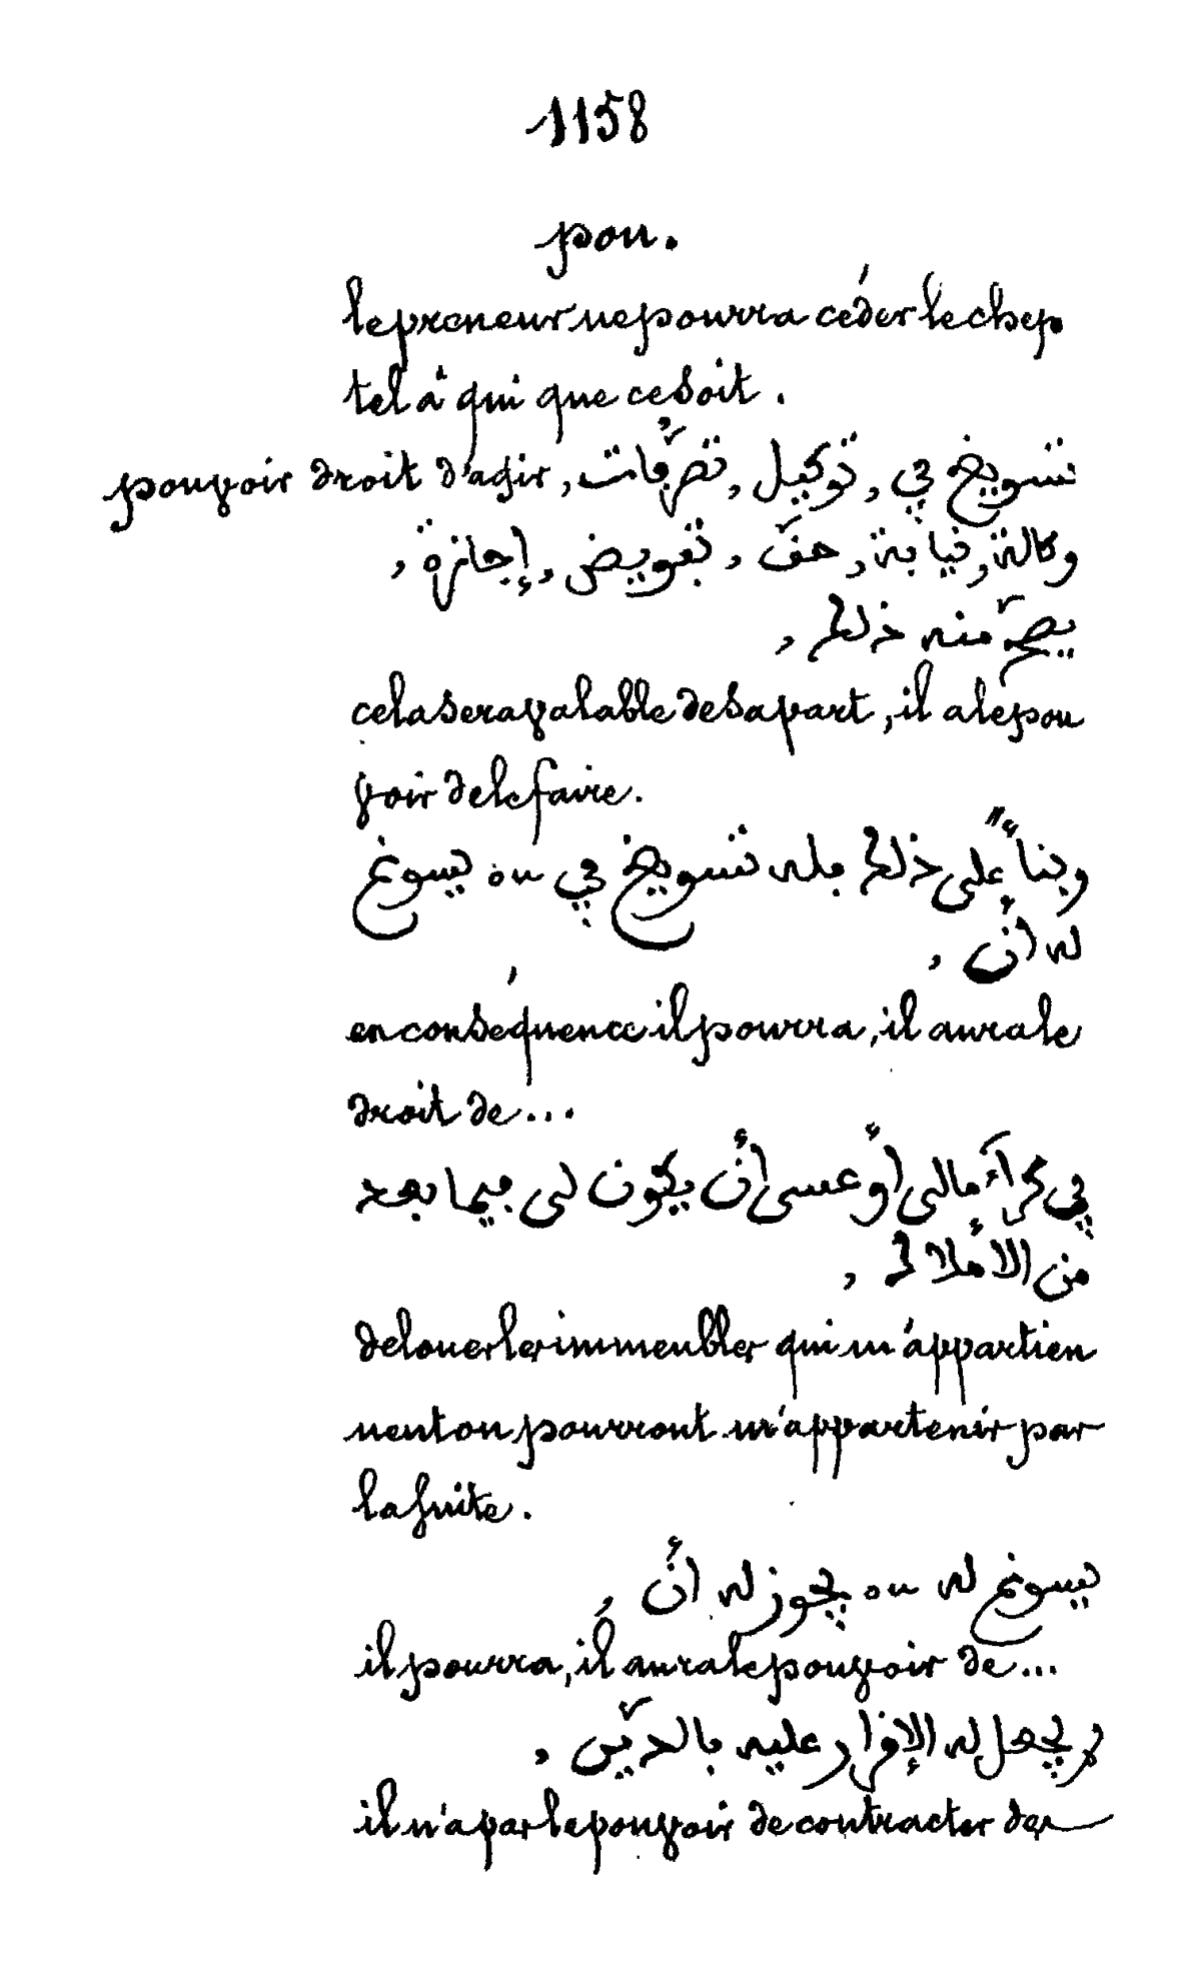 1158
pou.
le preneur ne pourra céder le chep
tel à qui que ce soit.
pouvoir droit d'agir, تسويغ في, توكيل, تصرّفات
وكالة, نيابة, حقّ, تفويض, إجازة,
يصحّ منه ذلك,
cela sera valable de sa part, il a le pou
voir de le faire.
وبناءً على ذلك فله تسويغ في ou يسوغ
له أن,
en conséquence il pourra, il aura le
droit de...
في كراء مالي أو عسى أن يكون لي فيما بعد
من الأملاك,
de louer les immeubles qui m'appartien
nent ou pourront m'appartenir par
la suite.
يسوغ له ou يجوز له أن,
il pourra, il aura le pouvoir de...
لم يجعل له الإقرار عليه بالدّين,
il n'a pas le pouvoir de contracter des